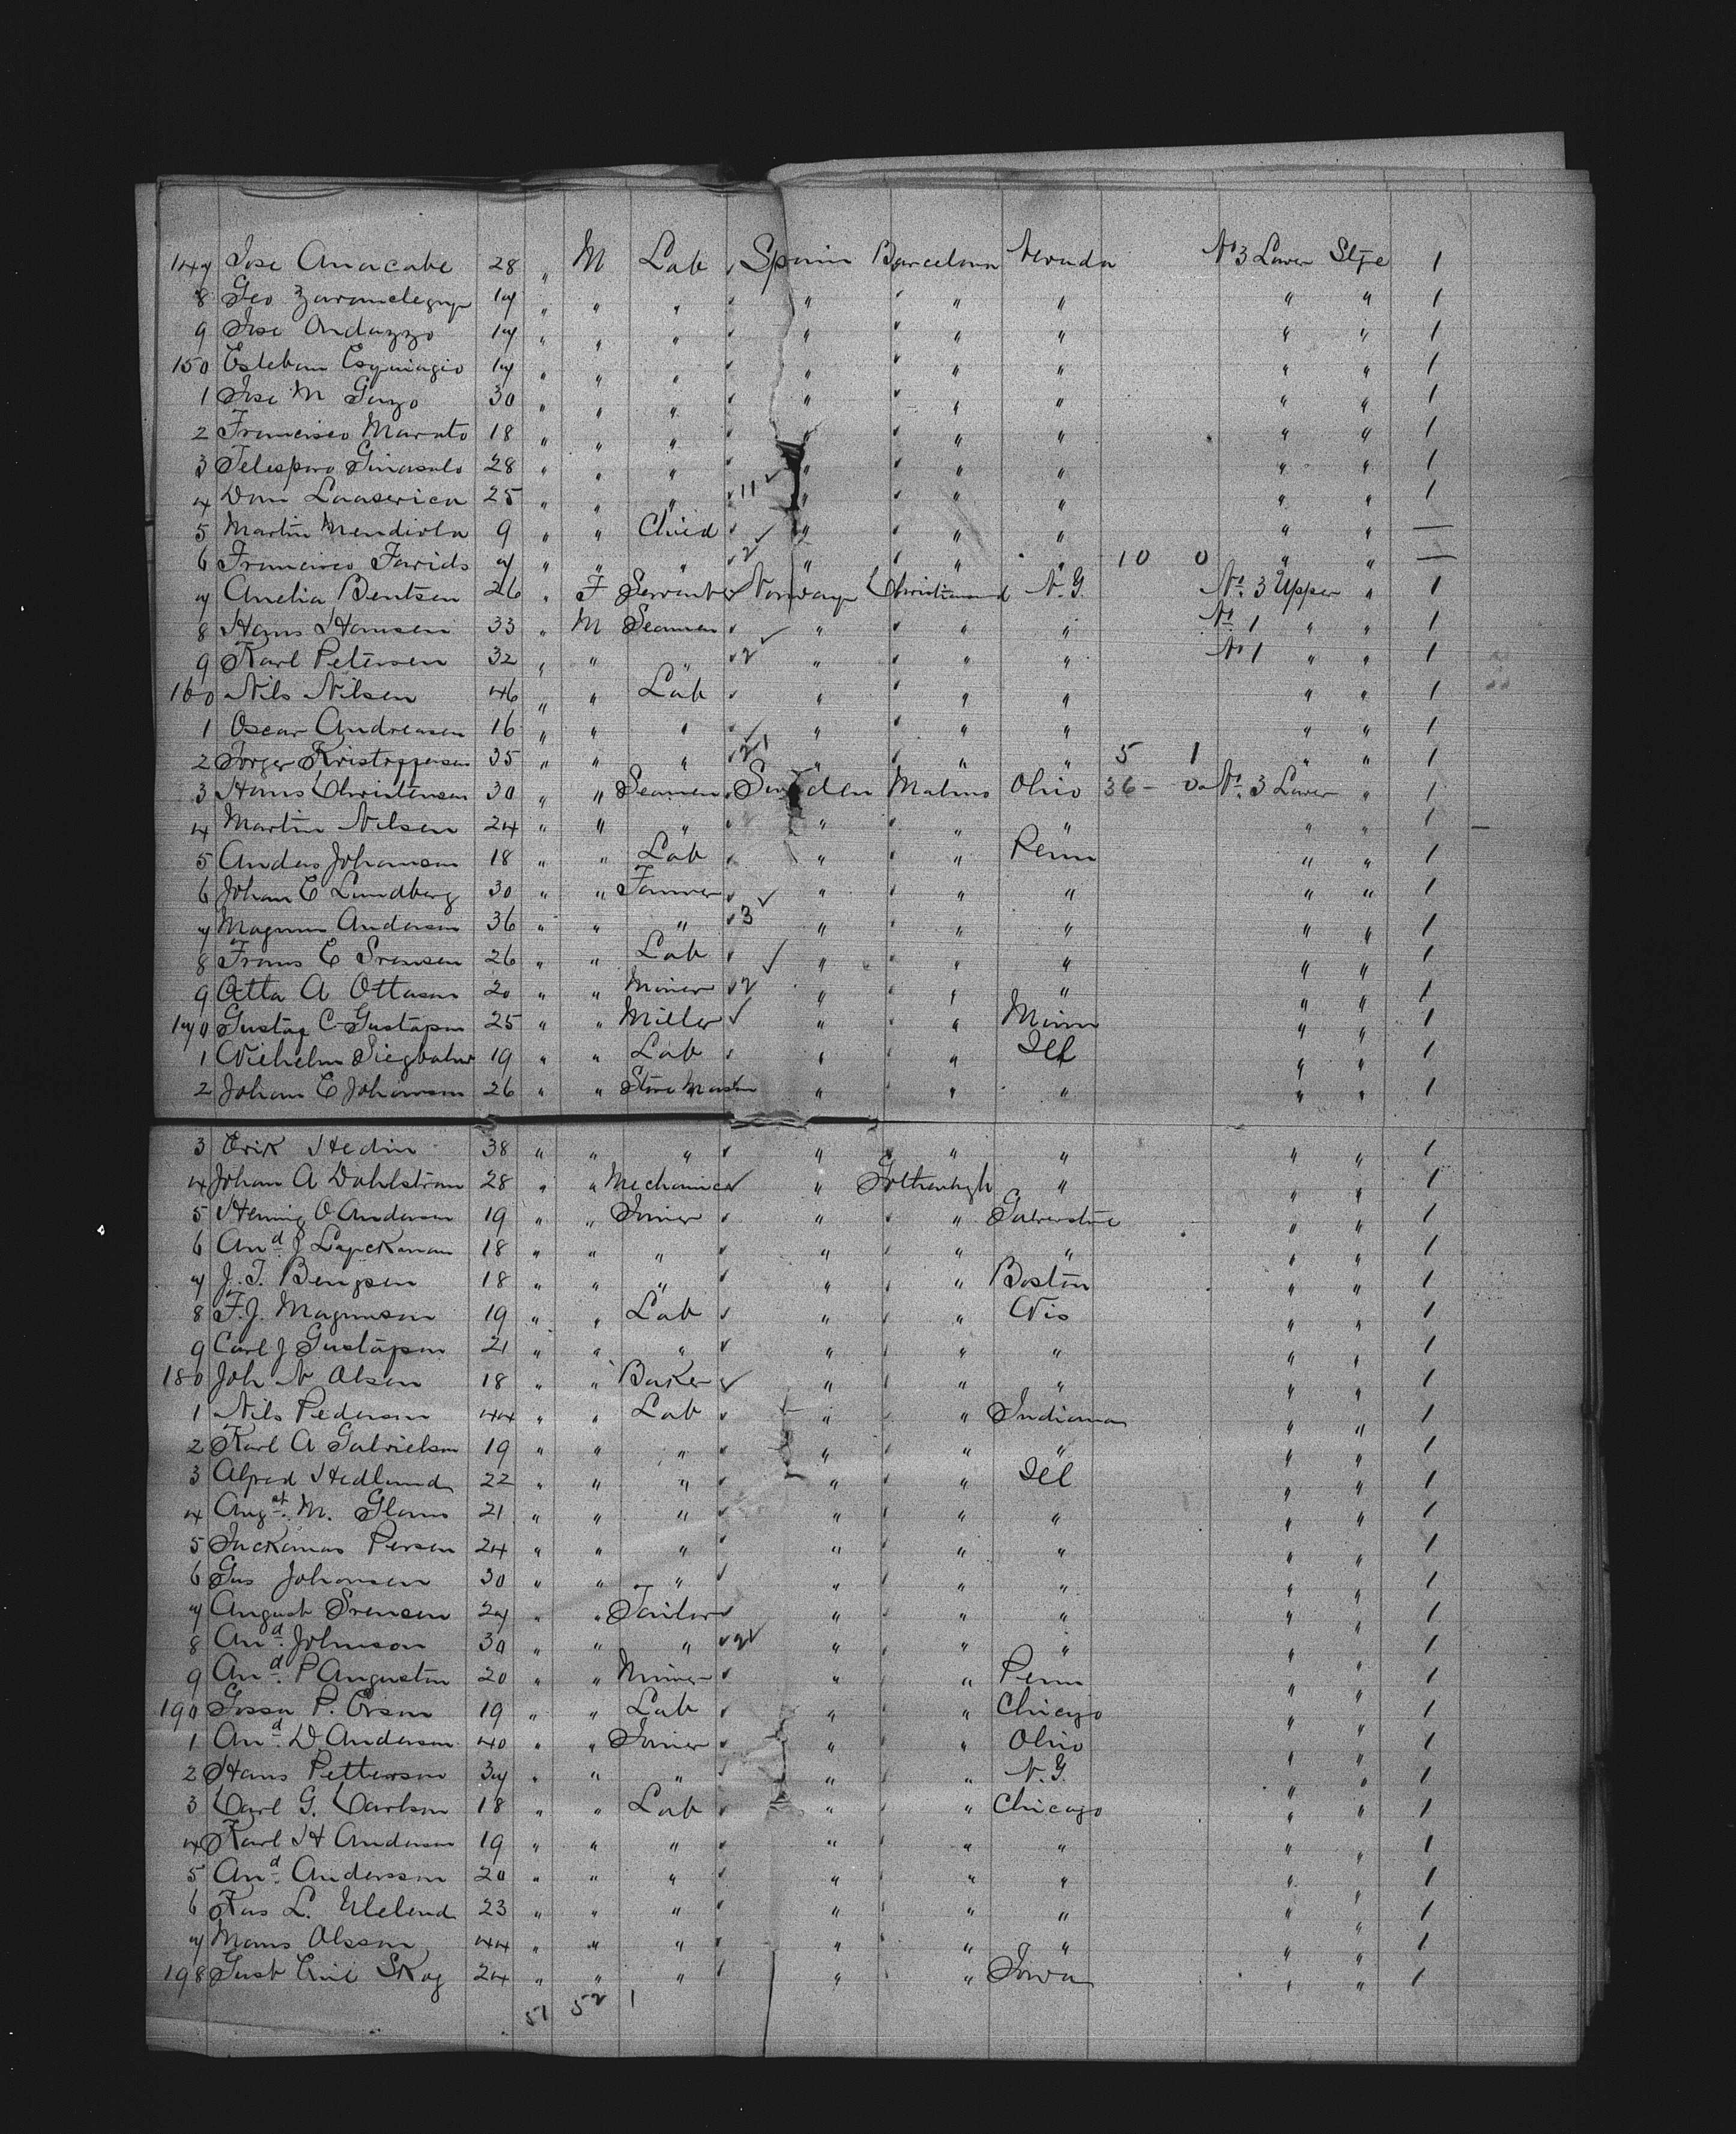 147 Jose Anacabe 28 " M Lab Spain Barcelona Nevada No 3 Lower Stge 1
8 Geo 17 " " " " " " " " 1
9 Jose Andazzo 17 " " " " " " " " 1
150 Esteban Esquiagio 17 " " " " " " " " 1
1 Jose M Guzo 30 " " " " " " " " 1
2 Francisco Marato 18 " " " " " " " " 1
3 Telesporo 28 " " " " " " " " 1
4 Dom 25 " " " 11 " " " " " 1
5 Martin Mendiola 9 " " Child " " " " " —
6 Francisco 7 " " " 2 " " " 10 0 " " —
7 Amelia Bentsen 26 " F Servant Norway Christiansand N.Y. No. 3 Upper " 1
8 Hans Hansen 33 " M Seaman " " " No 1 " " 1
9 Karl Petersen 32 " " " 2 " " " No 1 " " 1
160 Nils Nilsen 46 " " Lab " " " " " 1
1 Oscar Andreasen 16 " " " " " " " " 1
2 Torger Kristoffersen 35 " " " 21 " " " 5 1 " " 1
3 Hans Christensen 30 " " Seaman Sweden Malmo Ohio 36 - 0 No. 3 Lower " 1
4 Martin Nilsen 24 " " " " " " " " 1
5 Anders Johanson 18 " " Lab " " Penn " " 1
6 Johan E Lundberg 30 " " Farmer " " " " " 1
7 Magnus Anderson 36 " " " 3 " " " " " 1
8 Frans E Svensen 26 " " Lab " " " " " 1
9 Otto A Ottason 20 " " Miner 2 " " " " " 1
170 Gustaf C Gustafson 25 " " Miller " " Minn " " 1
1 Wilhelm Siegbahn 19 " " Lab " " Ill " " 1
2 Johan E Johanson 26 " " Stone Mason " " " " " 1
3 Erik Hedin 38 " " " " " " " " 1
4 Johan A Dahlstrom 28 " " Mechanic " Gothenbgh " " " 1
5 Hennig O Anderson 19 " " Joiner " " " " 1
6 And. J 18 " " " " " " " " 1
7 J. T. Bengsen 18 " " " " " Boston " " 1
8 F. J. Magnuson 19 " " Lab " " Wis " " 1
9 Carl J Gustafson 21 " " " " " " " " 1
180 Joh N Olsen 18 " " Baker " " " " " 1
1 Nils Pederson 44 " " Lab " " Indiana " " 1
2 Karl A Gabrielson 19 " " " " " " " " 1
3 Alfred Hedlund 22 " " " " " Ill " " 1
4 Augst. M. 21 " " " " " " " " 1
5 Persen 24 " " " " " " " " 1
6 Gus Johansen 30 " " " " " " " " 1
7 August Svensen 27 " " Tailor " " " " " 1
8 And. Johnson 30 " " " 2 " " " " " 1
9 And. P Augustin 20 " " Miner " " Penn " " 1
190 P. 19 " " Lab " " Chicago " " 1
1 And. D Anderson 40 " " Joiner " " Ohio " " 1
2 Hans Petterson 37 " " " " " N.Y. " " 1
3 Carl G. Carlson 18 " " Lab " " Chicago " " 1
4 Karl H Anderson 19 " " " " " " " " 1
5 And. Andersson 20 " " " " " " " " 1
6 L. 23 " " " " " " " " 1
7 Mans Olsson 44 " " " " " " " " 1
198 Gust Emil Skog 24 " " " " " Iowa " " 1
51 52 1